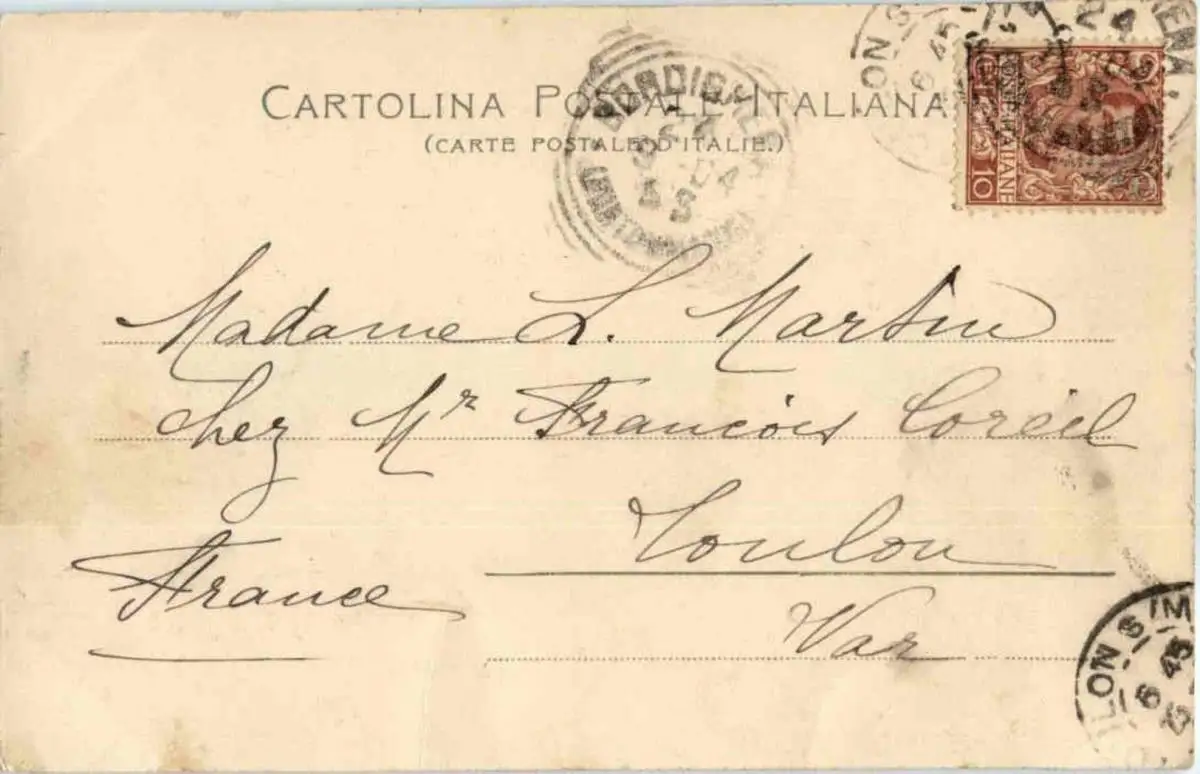 CARTOLINA POSTALE ITALIANA
(CARTE POSTALE D'ITALIE.)
10
Madame L. Martin
chez Mr François Coreil
Toulon
France
Var
LON S M
6 45